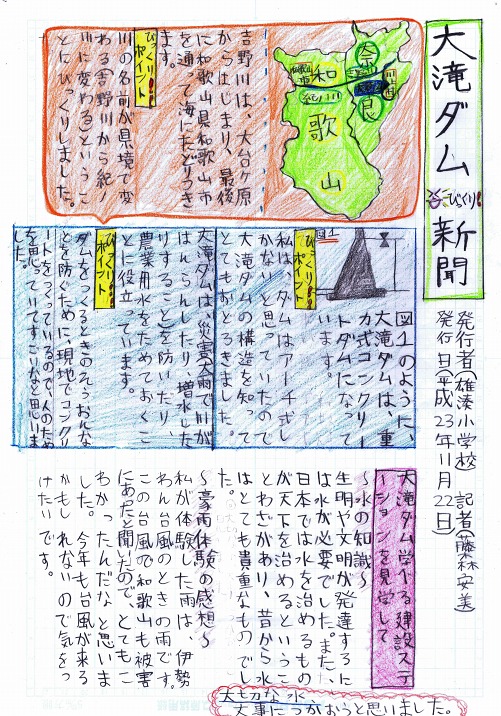 大滝ダムびっくり新聞
発行者(雄湊小学校 記者(藤林安美)
発行日(平成23年11月22日)
奈良
和歌山
紀ノ川
吉野川は、大台ヶ原
からはじまり、最後
に和歌山県和歌山市
を通って海にたどりつき
ます。
びっくりポイント
川の名前が県境で変
わる(吉野川から紀ノ
川に変わる)というこ
とにびっくりしました。
図1
図1のように、
大滝ダムは、重
力式コンクリー
トダムになって
います。
びっくりポイント
私は、ダムはアーチ式し
かないと思っていたので
大滝ダムの構造を知って
とてもおどろきました。
大滝ダムは、災害大雨で川が
はんらんしたり、増水した
りすることを防いだり、
農業用水をためておくこ
とに役立っています。
びっくりポイント
ダムをつくるときのそうおんな
どを防ぐために、現地でコンクリ
ートをつくっているので、人のため
を思っていてすごいなと思いま
した。
大滝ダム学べる建設ステ
ーションを見学して
～水の知識～
生明や文明が発達するに
は水が必要でした。また、
日本では水を治めるもの
が天下を治めるというこ
とわざがあり、昔から水
はとても貴重なものでし
た。
～豪雨体験の感想～
私が体験した雨は、伊勢
わん台風のときの雨です。
この台風で和歌山も被害
にあったと聞いたので、とてもこ
わかったんだなと思いま
した。今年も台風が来る
かもしれないので気をつ
けたいです。
大切な水
大事につかおうと思いました。